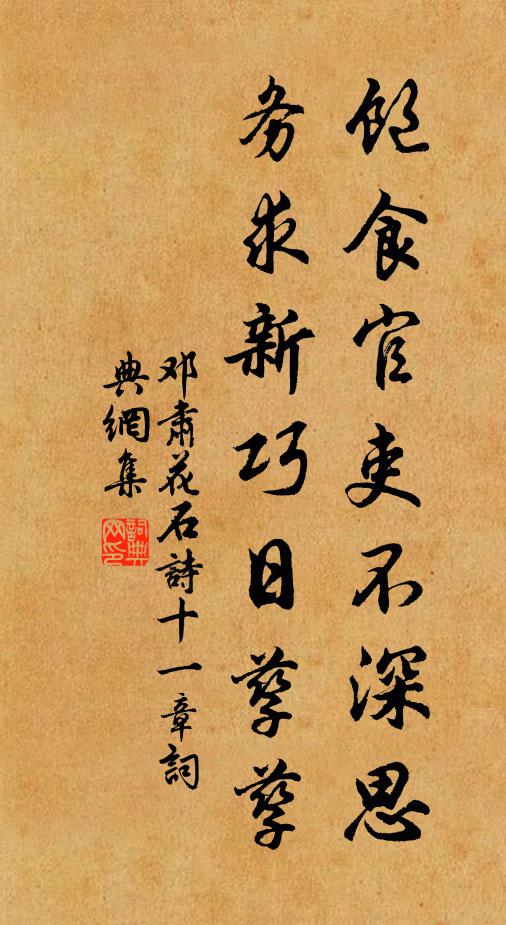 飽食官吏不深思
務求新巧日孳孳
邓肅花石詩十一章詞
典網集
詞典网印